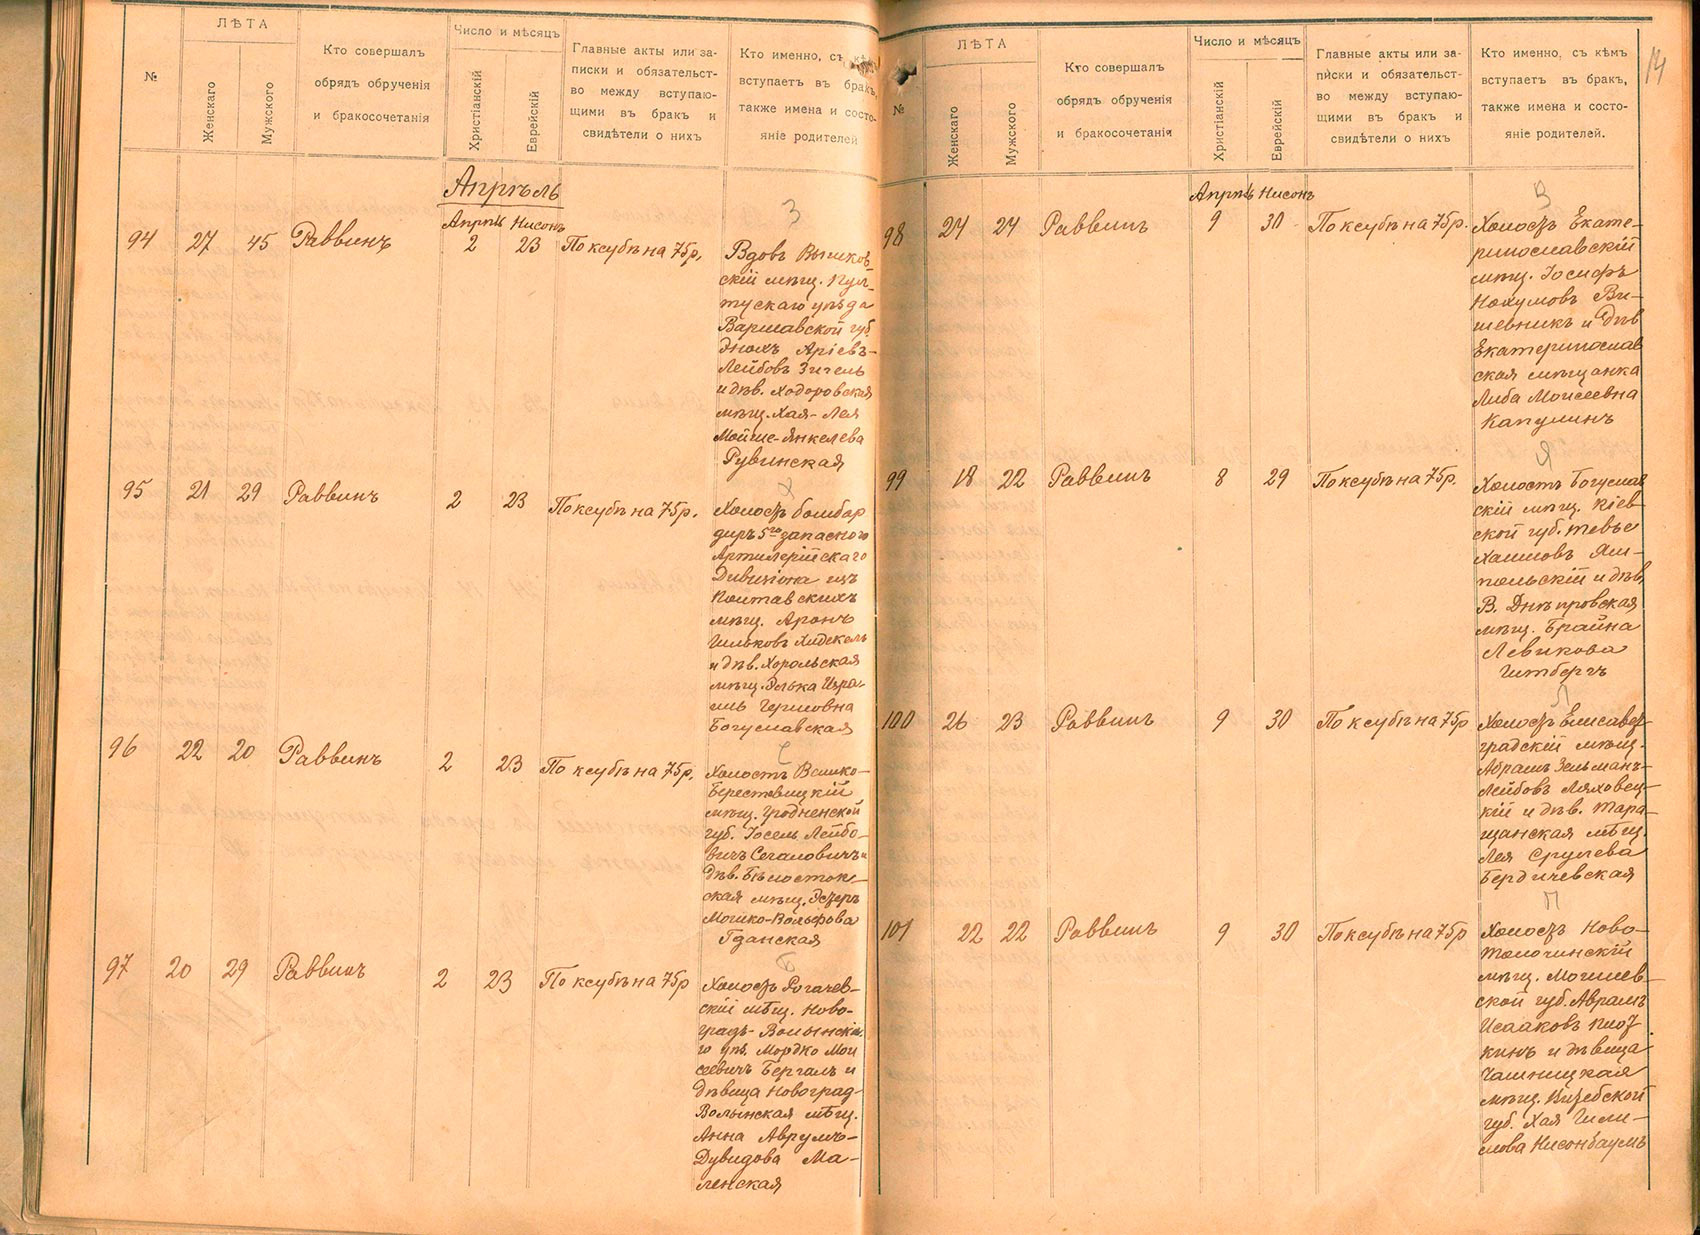 №
ЛѢТА
Женскаго
Мужского
Кто совершалъ
обрядъ обрученія
и бракосочетанія
Число и мѣсяцъ
Христіанскій
Еврейскій
Главные акты или за-
писки и обязательст-
во между вступаю-
щими въ бракъ и
свидѣтели о нихъ
Кто именно, съ кѣмъ
вступаетъ въ бракъ,
также имена и состо-
яніе родителей
Апрѣль
Апрѣль Нисонъ
З
94 27 45 Раввинъ 2 23 По ксубѣ на 75 р.
Вдовъ Вышков-
скій мѣщ. Пул-
тускаго уѣзда
Варшавской губ.
Энохъ Аріевъ-
Лейбовъ Зигель
и дѣв. Ходоровская
мѣщ. Хая-Лея
Мойше-Янкелева
Рувинская
95 21 29 Раввинъ 2 23 По ксубѣ на 75 р.
Х
Холостъ бомбар
диръ 5го запасного
Артилерійскаго
Дивизіона изъ
Полтавскихъ
мѣщ. Аронъ
Гильковъ Хидекель
и дѣв. Хорольская
мѣщ. Элька Изра-
иль Гершовна
Богуславская
96 22 20 Раввинъ 2 23 По ксубѣ на 75 р.
С
Холостъ Велико-
Берестовицкій
мѣщ. Гродненской
губ. Іосель Лейбо-
вичъ Сегаловичъ и
дѣв. Бѣлосток-
ская мѣщ. Эстеръ
Мошко-Вольфова
Гданская
97 20 29 Раввинъ 2 23 По ксубѣ на 75 р
Б
Холостъ Рогачев-
скій мѣщ. Ново-
градъ-Волынска-
го уѣ. Мордко Мои
сеевичъ Бергалъ и
дѣвица Новоград-
Волынская мѣщ.
Анна Аврумъ-
Дувидова Ма-
ленская
14
№
ЛѢТА
Женскаго
Мужского
Кто совершалъ
обрядъ обрученія
и бракосочетанія
Число и мѣсяцъ
Христіанскій
Еврейскій
Главные акты или за-
писки и обязательст-
во между вступаю-
щими въ бракъ и
свидѣтели о нихъ
Кто именно, съ кѣмъ
вступаетъ въ бракъ,
также имена и состо-
яніе родителей.
Апрѣль Нисонъ
В
98 24 24 Раввинъ 9 30 По ксубѣ на 75 р.
Холостъ Екате-
ринославскій
мѣщ. Іосифъ
Нохумовъ Ви-
шевникъ и дѣв
Екатеринослав
ская мѣщанка
Либа Моисеевна
Капулинъ
Я
99 18 22 Раввинъ 8 29 По ксубѣ на 75 р.
Холостъ Богуслав
скій мѣщ. Кіев-
ской губ. Тевье
Хаимовъ Ям-
польскій и дѣв.
В. Днѣпровская
мѣщ. Брайна
Левикова
Гитбергъ
Л
100 26 23 Раввинъ 9 30 По ксубѣ на 75 р
Холостъ Елисавет-
градскій мѣщ.
Абрамъ Зельманъ-
Лейбовъ Ляховец-
кій и дѣв. Тара-
щанская мѣщ.
Лея Срулева
Бердичевская
П
101 22 22 Раввинъ 9 30 По ксубѣ на 75 р
Холостъ Ново-
Толочинскій
мѣщ. Могилев-
ской губ. Аврамъ
Исааковъ Плот
кинъ и дѣвица
Чашницкая
мѣщ. Витебской
губ. Хая Шли-
мова Нисонбаумъ